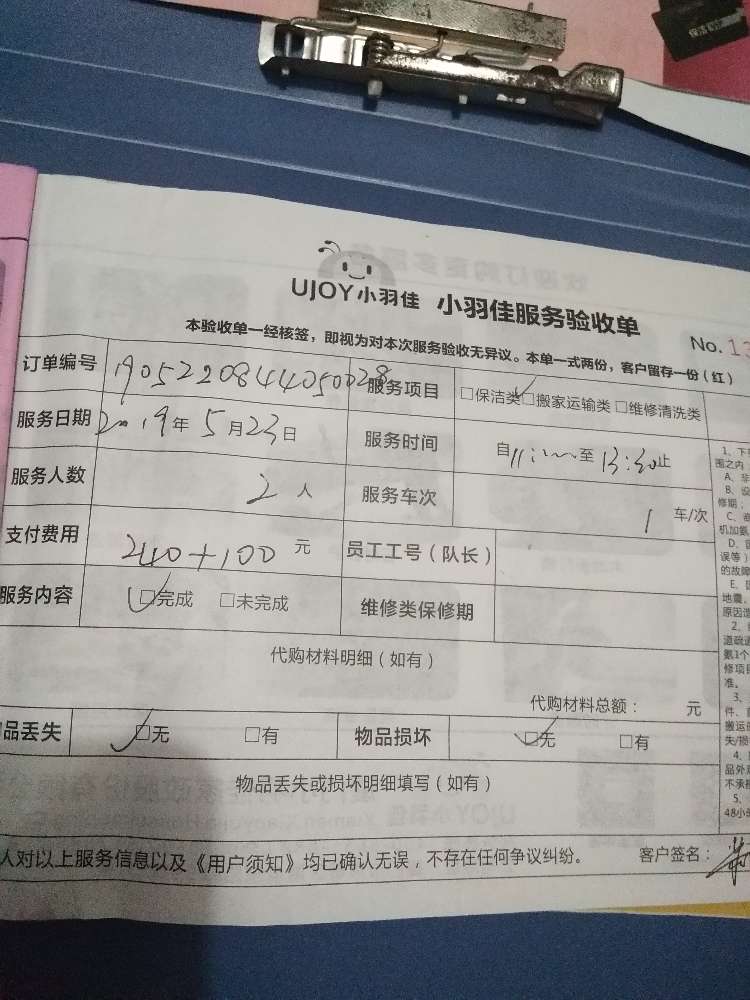 UJOY小羽佳 小羽佳服务验收单
No.13
本验收单一经核签，即视为对本次服务验收无异议。本单一式两份，客户留存一份（红）
订单编号 1905220844050028 服务项目 □保洁类 □搬家运输类 □维修清洗类
服务日期 2019年5月23日 服务时间 自11: 至13:30止
服务人数 2人 服务车次 1车/次
支付费用 240+100元 员工工号（队长）
服务内容 □完成 □未完成 维修类保修期
代购材料明细（如有）
代购材料总额： 元
品丢失 □无 □有 物品损坏 □无 □有
物品丢失或损坏明细填写（如有）
人对以上服务信息以及《用户须知》均已确认无误，不存在任何争议纠纷。 客户签名：
1、下
围之内
A、非
B、设
修期；
C、
机加氨
D、
误等）
的故障
E、因
地震、
原因
2、
道疏通
氨1个
修项目
准。
3、
件、
搬运
失/损
4、
品外
不承担
5、
48小